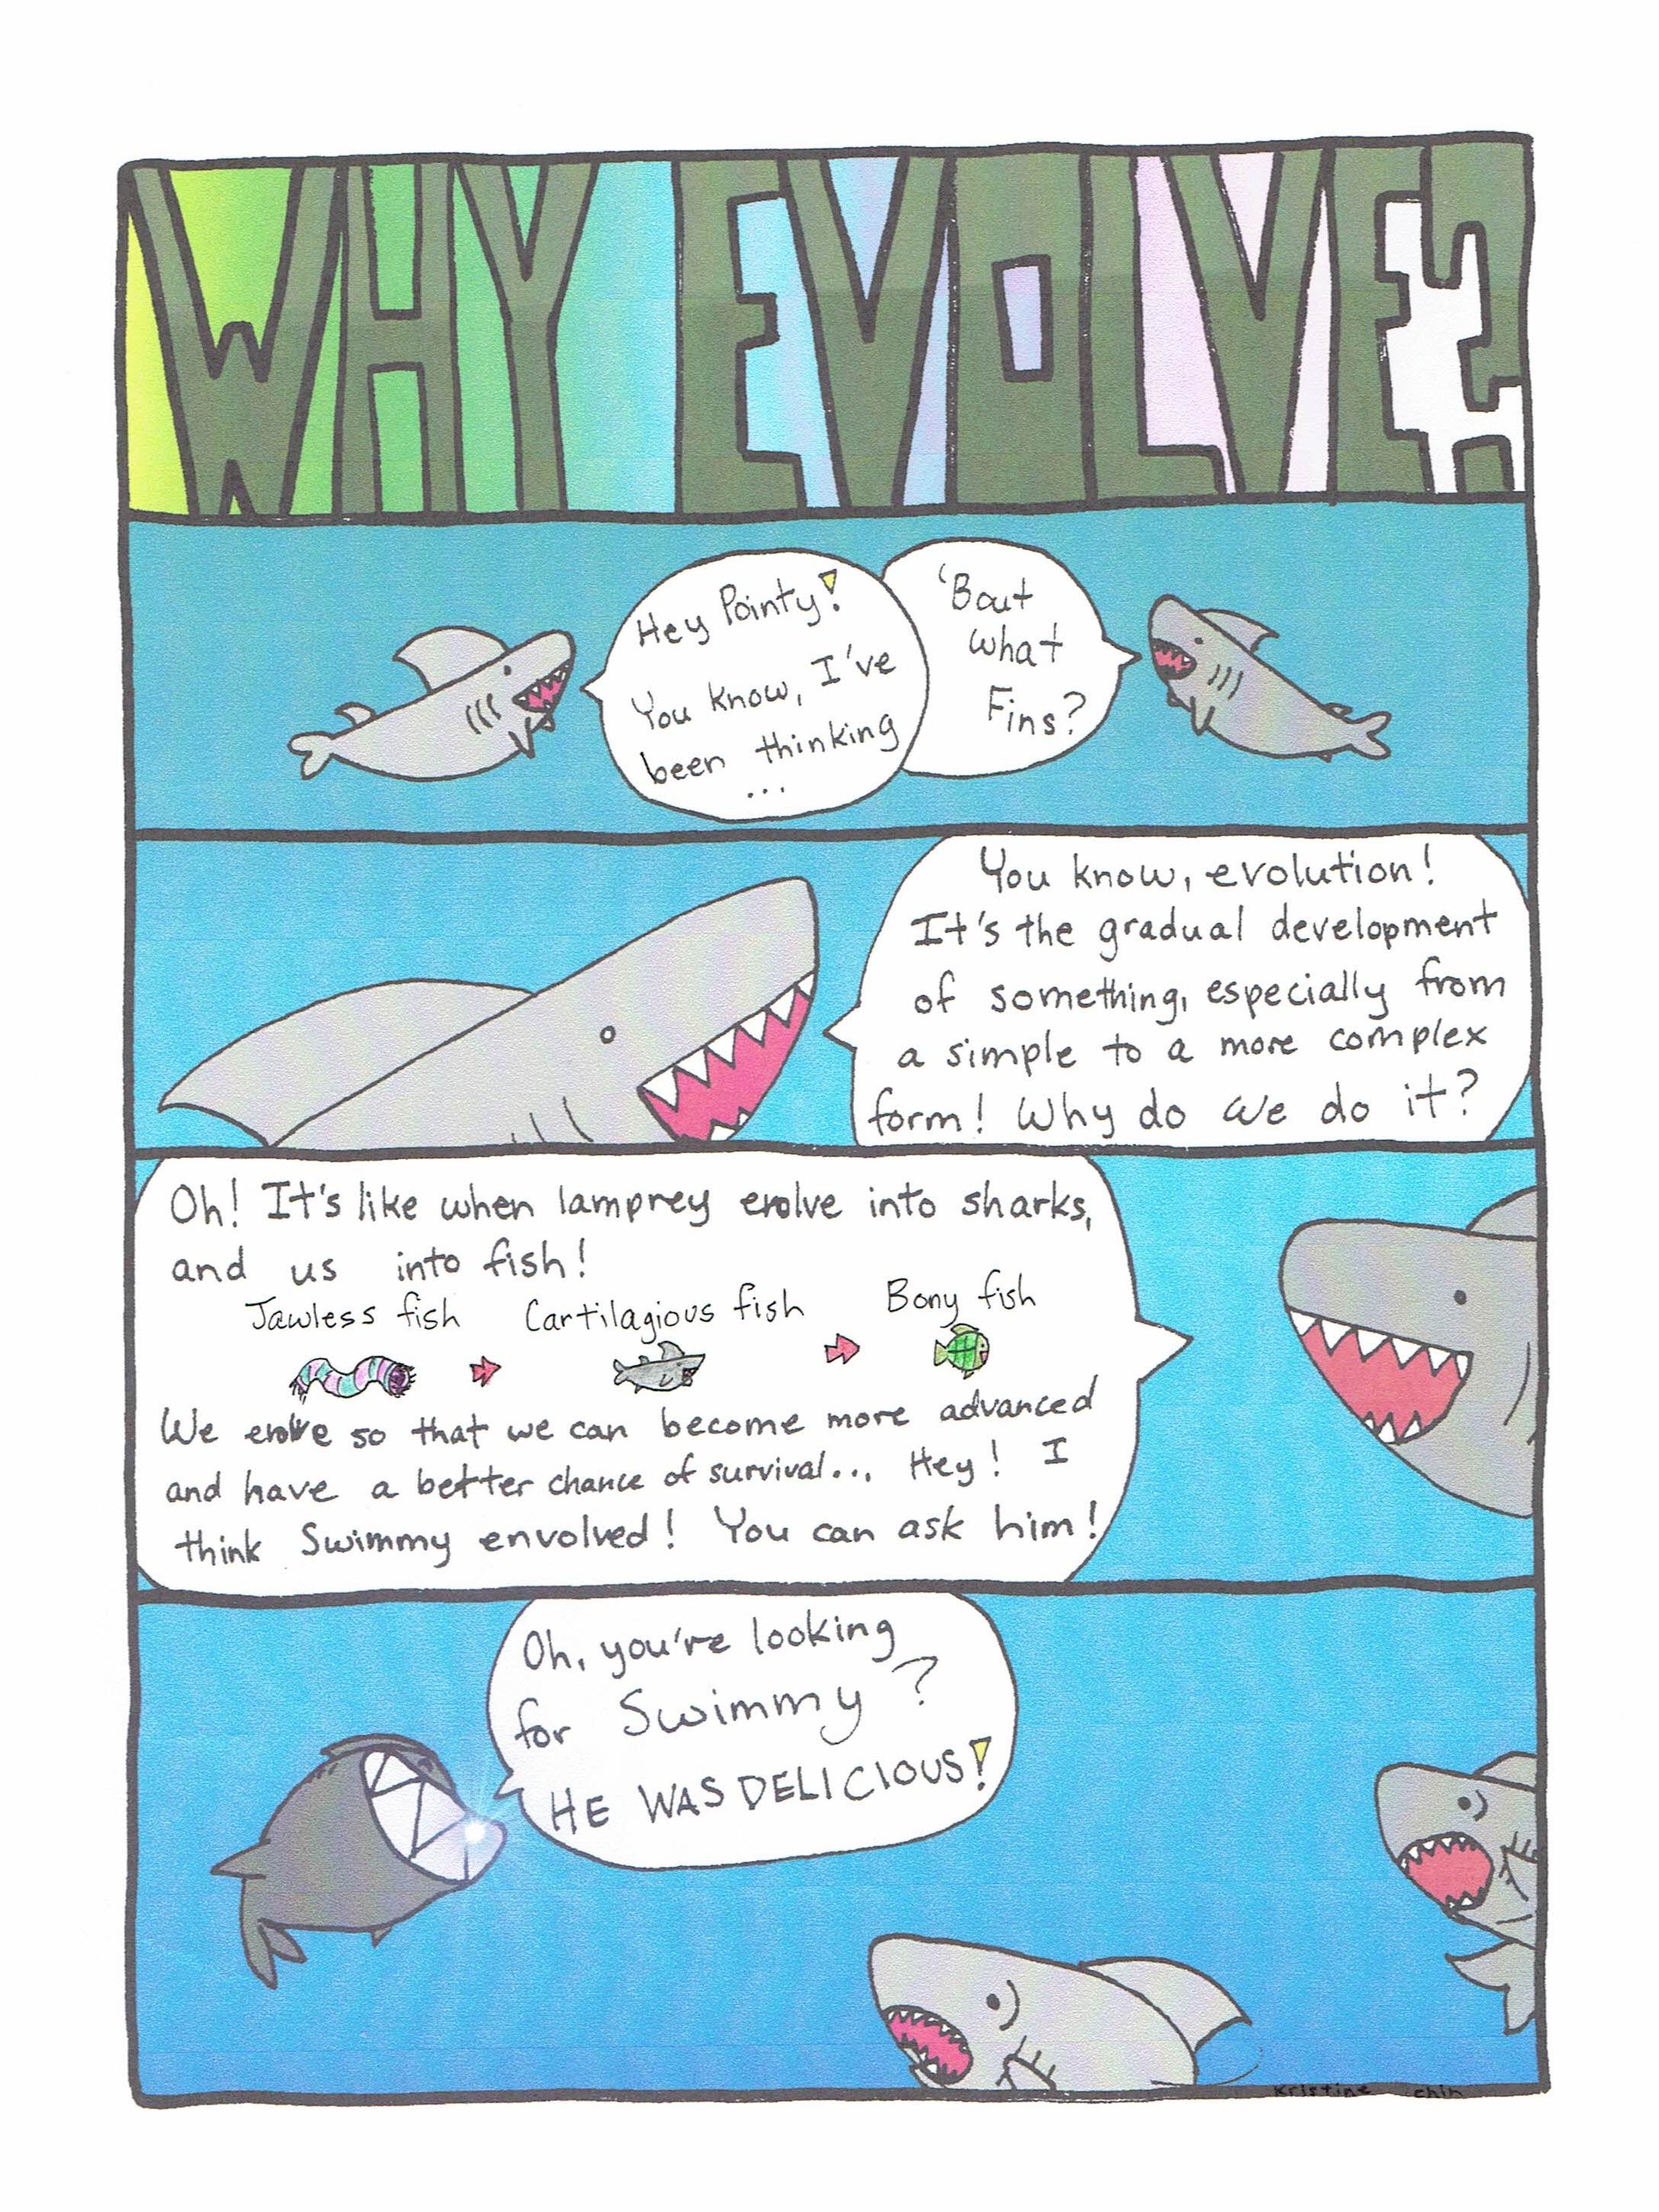 WHY EVOLVE?
Hey Pointy!
You know, I've
been thinking
...
'Bout
what
Fins?
You know, evolution!
It's the gradual development
of something, especially from
a simple to a more complex
form! Why do we do it?
Oh! It's like when lamprey evolve into sharks,
and us into fish!
Jawless fish Cartilagious fish Bony fish
We evolve so that we can become more advanced
and have a better chance of survival... Hey! I
think Swimmy envolved! You can ask him!
Oh, you're looking
for Swimmy?
HE WAS DELICIOUS!
Kristine Chin